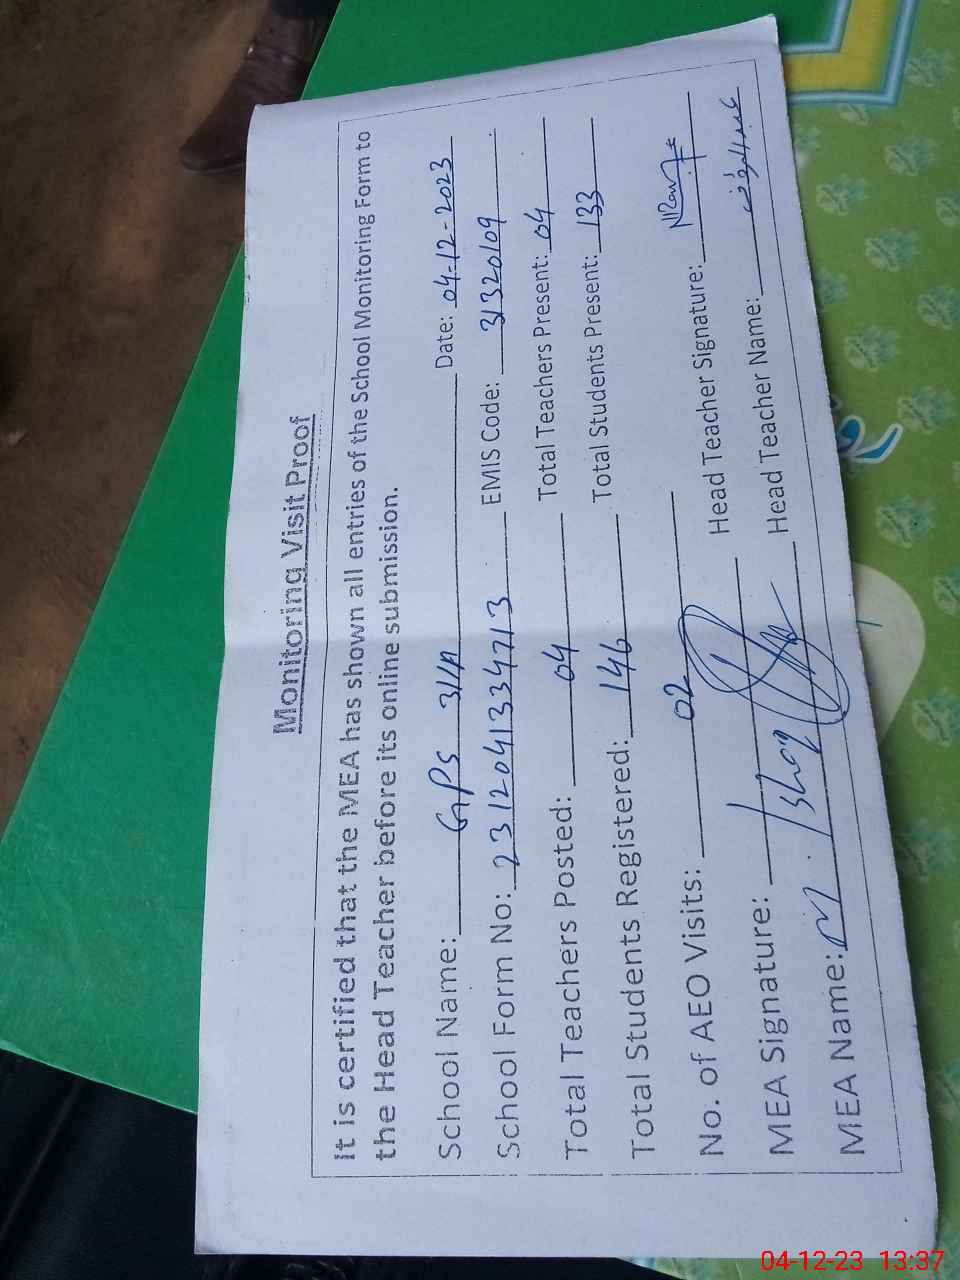 Monitoring Visit Proof
It is certified that the MEA has shown all entries of the School Monitoring Form to
the Head Teacher before its online submission.
School Name: GPS 31/A Date: 04-12-2023
School Form No: 2312041334713 EMIS Code: 31320109
Total Teachers Posted: 04 Total Teachers Present: 04
Total Students Registered: 146 Total Students Present: 133
No. of AEO Visits: 02
MEA Signature: Head Teacher Signature:
MEA Name: M. Ishaq Head Teacher Name:
04-12-23 13:37